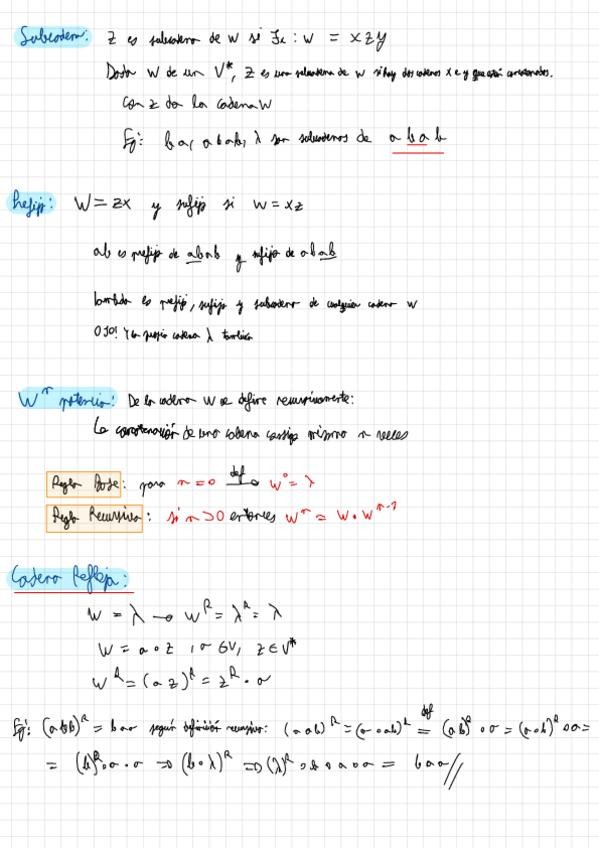 Subcadena: z es subcadena de w si ∃x : w = xzy
Dada w de un V*, z es una subcadena de w si hay dos cadenas x e y que están concatenadas
con z da la cadena w
Ej: ba, abab, λ son subcadenas de abab
Prefijo: W = zx y sufijo si w = xz
ab es prefijo de abab y sufijo de abab
lambda es prefijo, sufijo y subcadena de cualquier cadena w
OJO! Y la propia cadena λ también
Wⁿ potencia: De la cadena W se define recursivamente:
La concatenación de una cadena consigo mismo n veces
Regla Base: para n = 0 def → w⁰ = λ
Regla Recursiva: si n > 0 entonces wⁿ = w · wⁿ⁻¹
Cadena Refleja:
W = λ → w^R = λ^R = λ
W = a ∘ z , a ∈ V, z ∈ V*
w^R = (az)^R = z^R · a
Ej: = baa según definición recursiva: (aab)^R = (a∘ab)^R def = (ab)^R ∘ a = (a∘b)^R ∘ a =
= (b)^R ∘ a · a ⇒ (b∘λ)^R ⇒ (λ)^R ∘ b ∘ a ∘ a = baa//